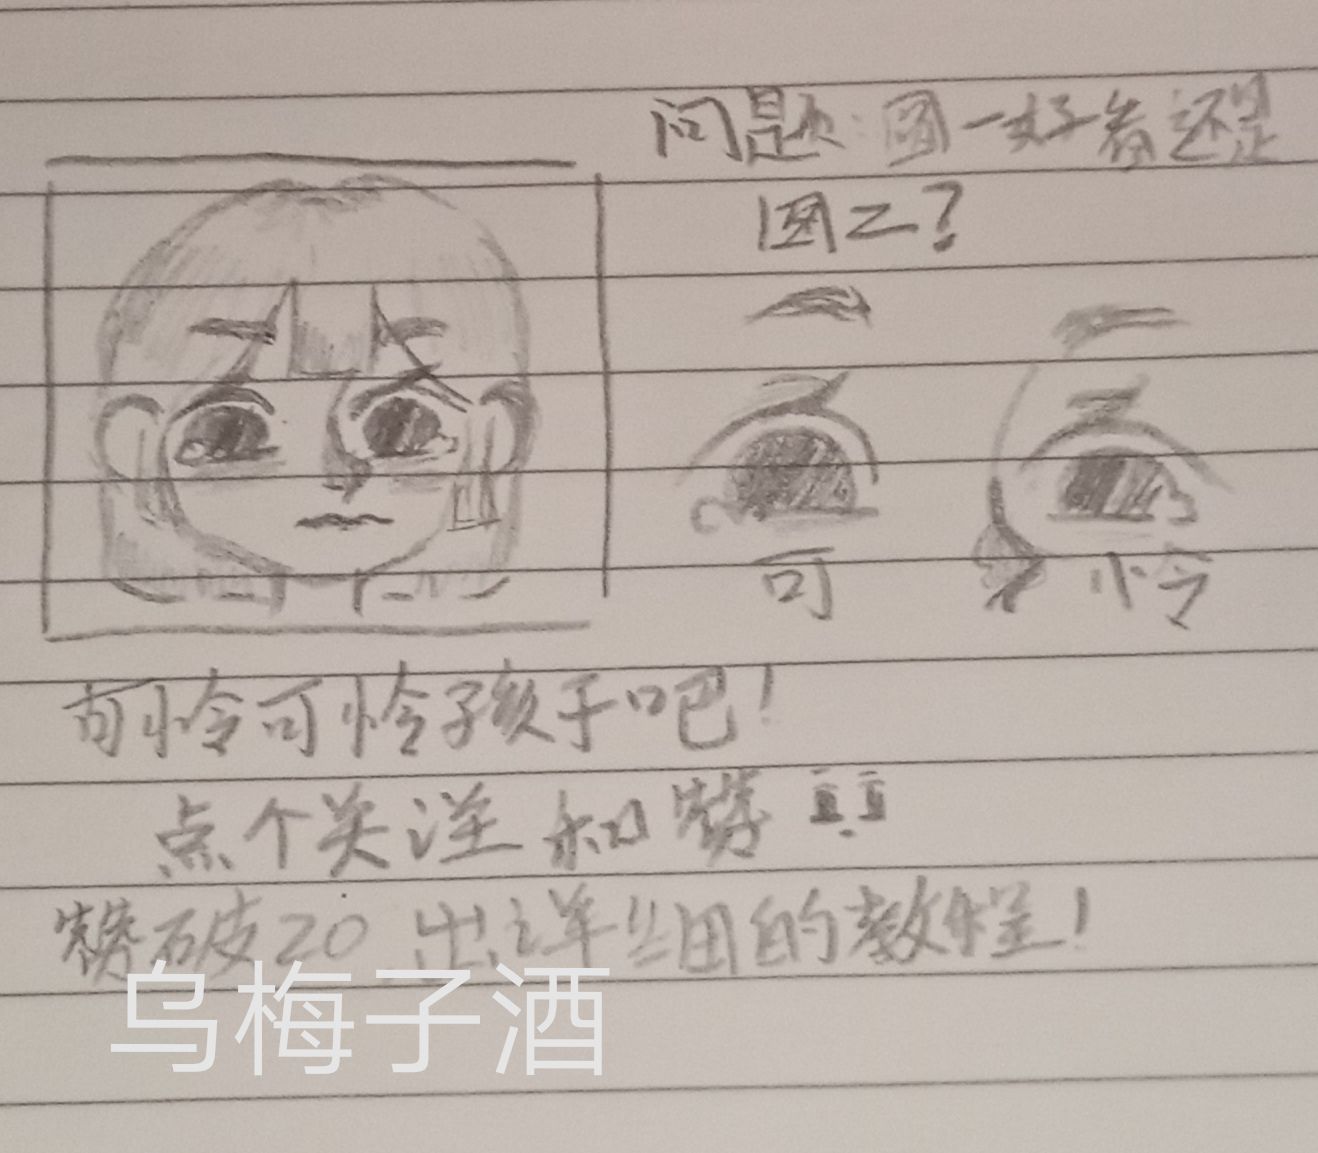 问题：图一好看还是
图二？
可 怜
可怜可怜孩子吧！
点个关注和赞
赞破20 出详细的教程！
乌梅子酒